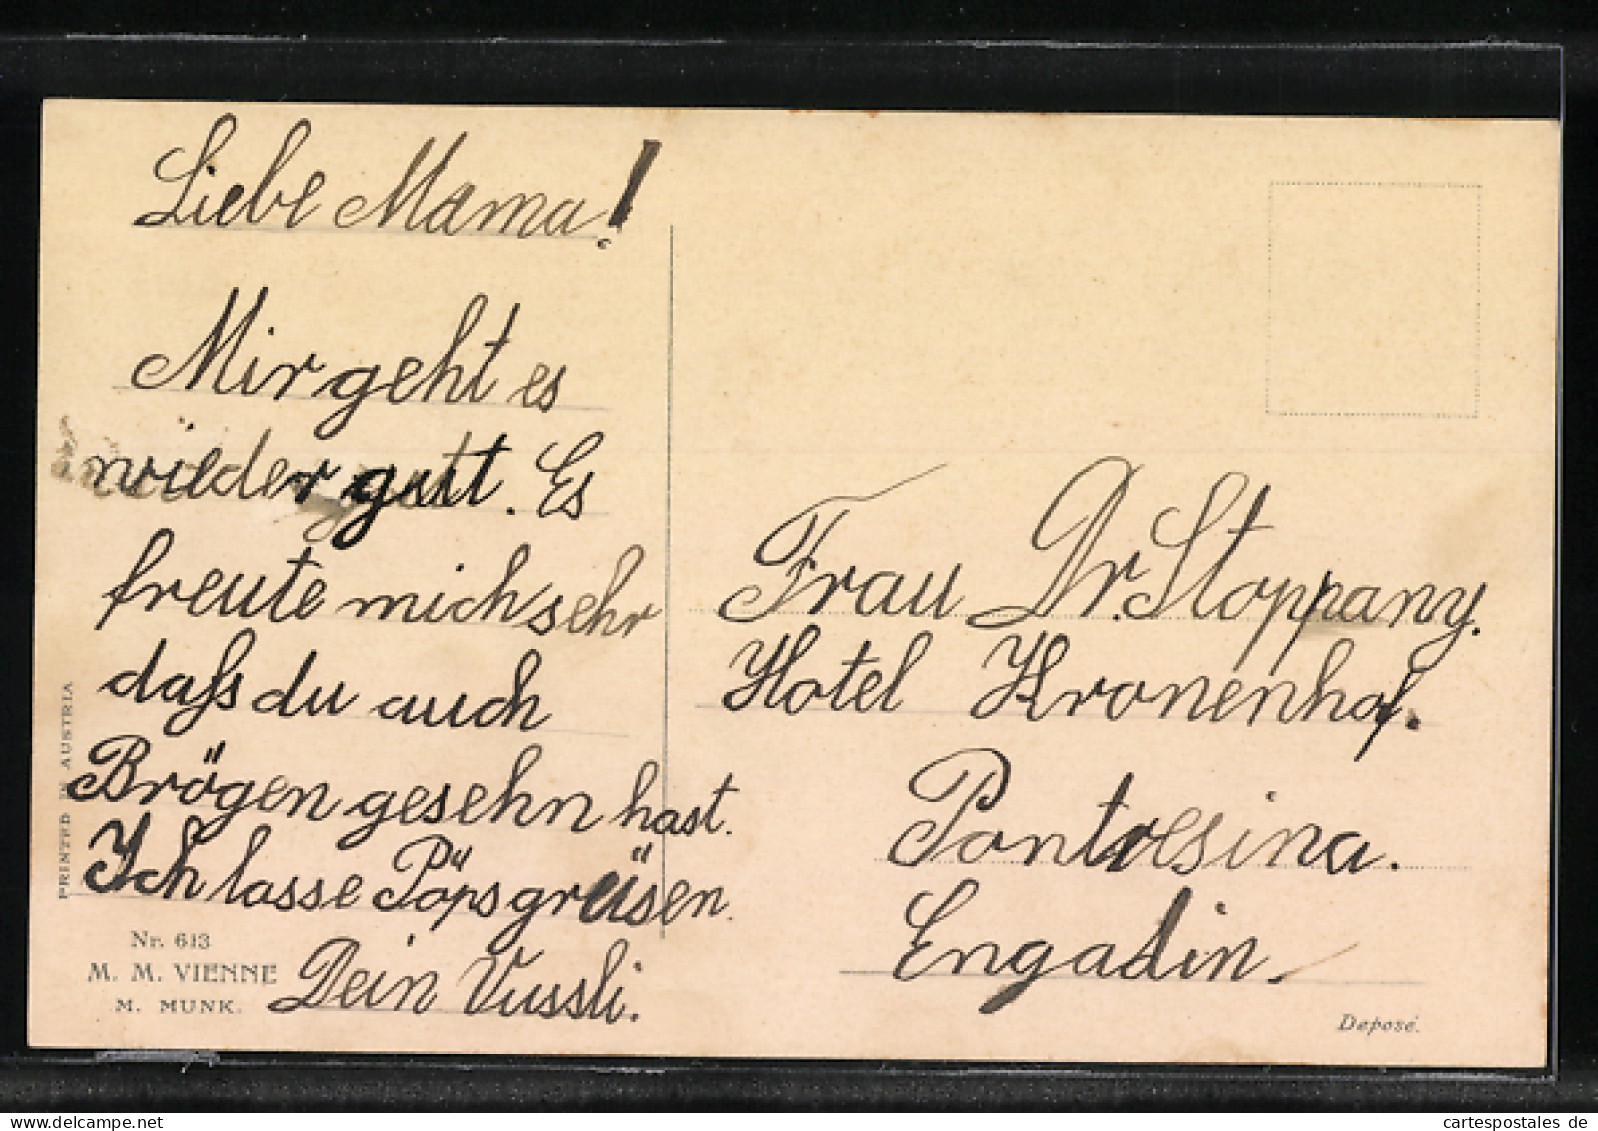 Liebe Mama!
Mir geht es
wieder gutt. Es
freute mich sehr
daß du auch
Brögen gesehn hast.
Ich lasse Pöps grüsen.
Dein Vussli.
Frau Dr. Stoppany.
Hotel Kronenhof.
Pontresina.
Engadin.
PRINTED IN AUSTRIA
Nr. 613
M. M. VIENNE
M. MUNK.
Deposé.
cartespostales de